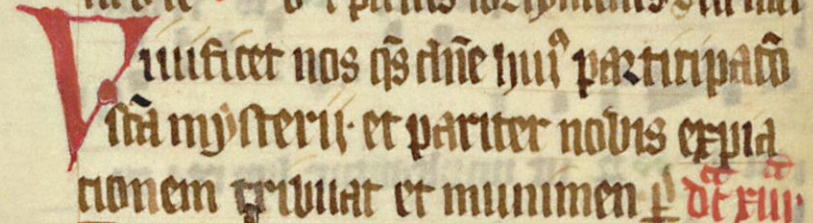 Viuificet nos q̄s dn̄e huiꝰ participatō
sc̄a mysterij· et pariter nobis expia
tionem tribuat et munimen ꝑ